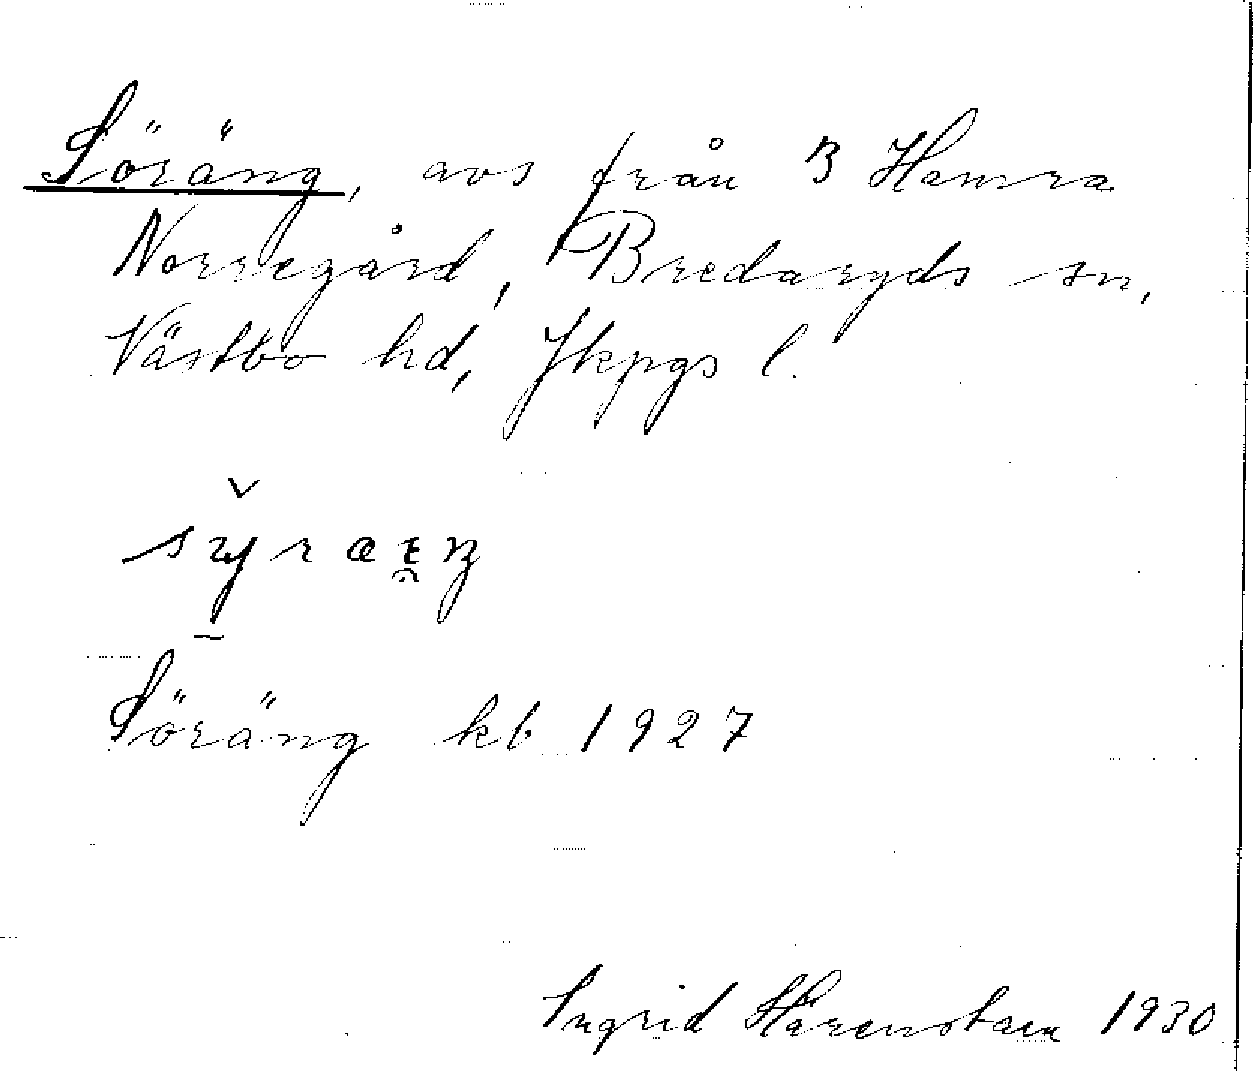 Söräng, avs från 3 Hamra
Norregård, Bredaryds sn,
Västbo hd, Jkpgs l.
Söräng kb 1927
Ingrid Härenstam 1930